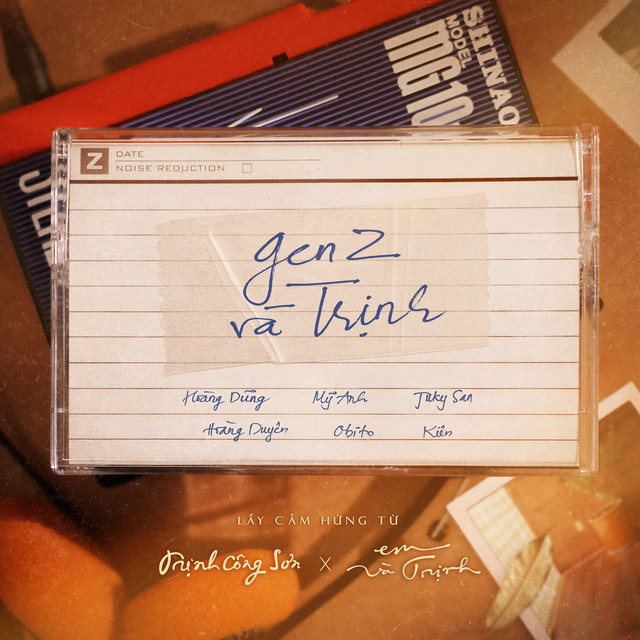 SHINAO
MODEL
MG10
Z DATE
NOISE REDUCTION
gen Z
và Trịnh
Hoàng Dũng Mỹ Anh Juky San
Hoàng Duyên Obito Kiên
LẤY CẢM HỨNG TỪ
Trịnh Công Sơn X em và Trịnh